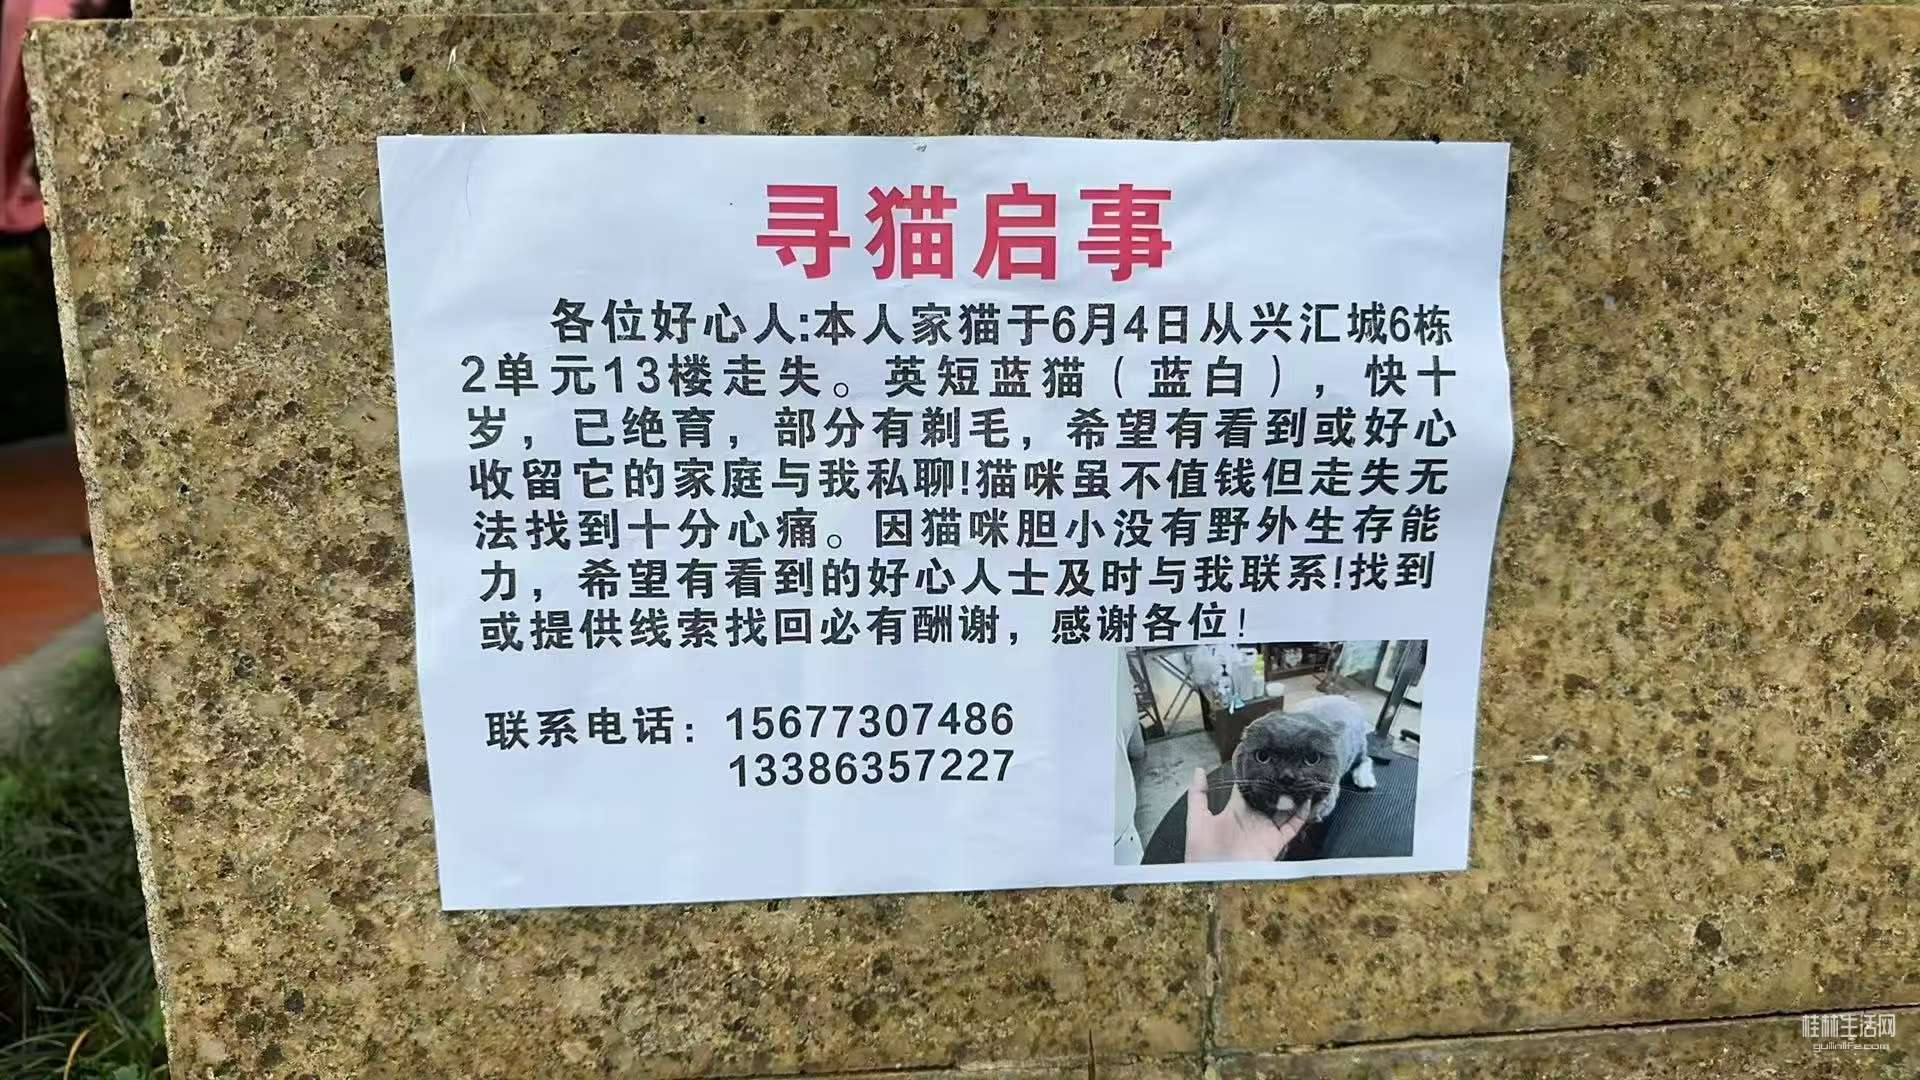 寻猫启事
各位好心人:本人家猫于6月4日从兴汇城6栋
2单元13楼走失。英短蓝猫（蓝白），快十
岁，已绝育，部分有剃毛，希望有看到或好心
收留它的家庭与我私聊!猫咪虽不值钱但走失无
法找到十分心痛。因猫咪胆小没有野外生存能
力，希望有看到的好心人士及时与我联系!找到
或提供线索找回必有酬谢，感谢各位!
联系电话：15677307486
13386357227
桂林生活网
guilinlife.com